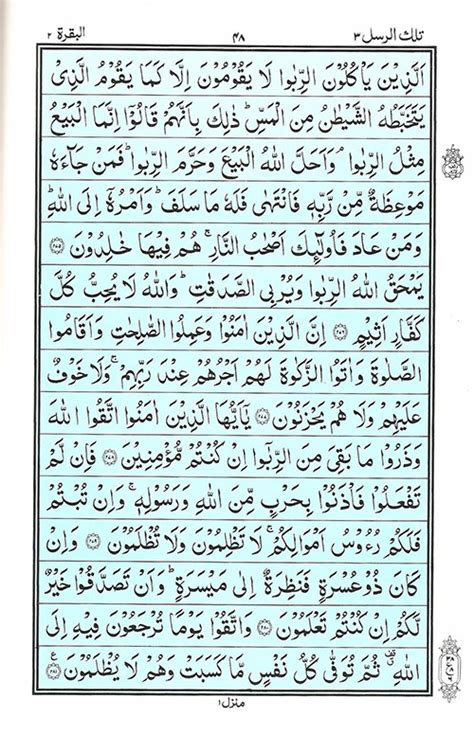 تلك الرسل ٣ ٤٨ البقرة ٢
اَلَّذِيْنَ يَاْكُلُوْنَ الرِّبٰوا لَا يَقُوْمُوْنَ اِلَّا كَمَا يَقُوْمُ الَّذِيْ
يَتَخَبَّطُهُ الشَّيْطٰنُ مِنَ الْمَسِّ ؕ ذٰلِكَ بِاَنَّهُمْ قَالُوْۤا اِنَّمَا الْبَيْعُ
مِثْلُ الرِّبٰوا ۘ وَاَحَلَّ اللّٰهُ الْبَيْعَ وَحَرَّمَ الرِّبٰوا ؕ فَمَنْ جَآءَهٗ
مَوْعِظَةٌ مِّنْ رَّبِّهٖ فَانْتَهٰى فَلَهٗ مَا سَلَفَ ؕ وَاَمْرُهٗۤ اِلَى اللّٰهِ ؕ
وَمَنْ عَادَ فَاُولٰٓئِكَ اَصْحٰبُ النَّارِ ۚ هُمْ فِيْهَا خٰلِدُوْنَ ﴿٢٧٥﴾
يَمْحَقُ اللّٰهُ الرِّبٰوا وَيُرْبِي الصَّدَقٰتِ ؕ وَاللّٰهُ لَا يُحِبُّ كُلَّ
كَفَّارٍ اَثِيْمٍ ﴿٢٧٦﴾ اِنَّ الَّذِيْنَ اٰمَنُوْا وَعَمِلُوا الصّٰلِحٰتِ وَاَقَامُوا
الصَّلٰوةَ وَاٰتَوُا الزَّكٰوةَ لَهُمْ اَجْرُهُمْ عِنْدَ رَبِّهِمْ ۚ وَلَا خَوْفٌ
عَلَيْهِمْ وَلَا هُمْ يَحْزَنُوْنَ ﴿٢٧٧﴾ يٰۤاَيُّهَا الَّذِيْنَ اٰمَنُوا اتَّقُوا اللّٰهَ
وَذَرُوْا مَا بَقِيَ مِنَ الرِّبٰۤوا اِنْ كُنْتُمْ مُّؤْمِنِيْنَ ﴿٢٧٨﴾ فَاِنْ لَّمْ
تَفْعَلُوْا فَاْذَنُوْا بِحَرْبٍ مِّنَ اللّٰهِ وَرَسُوْلِهٖ ۚ وَاِنْ تُبْتُمْ
فَلَكُمْ رُءُوْسُ اَمْوَالِكُمْ ۚ لَا تَظْلِمُوْنَ وَلَا تُظْلَمُوْنَ ﴿٢٧٩﴾ وَاِنْ
كَانَ ذُوْ عُسْرَةٍ فَنَظِرَةٌ اِلٰى مَيْسَرَةٍ ؕ وَاَنْ تَصَدَّقُوْا خَيْرٌ
لَّكُمْ اِنْ كُنْتُمْ تَعْلَمُوْنَ ﴿٢٨٠﴾ وَاتَّقُوْا يَوْمًا تُرْجَعُوْنَ فِيْهِ اِلَى
اللّٰهِ ۫ ثُمَّ تُوَفّٰى كُلُّ نَفْسٍ مَّا كَسَبَتْ وَهُمْ لَا يُظْلَمُوْنَ ﴿٢٨١﴾
منزل ١